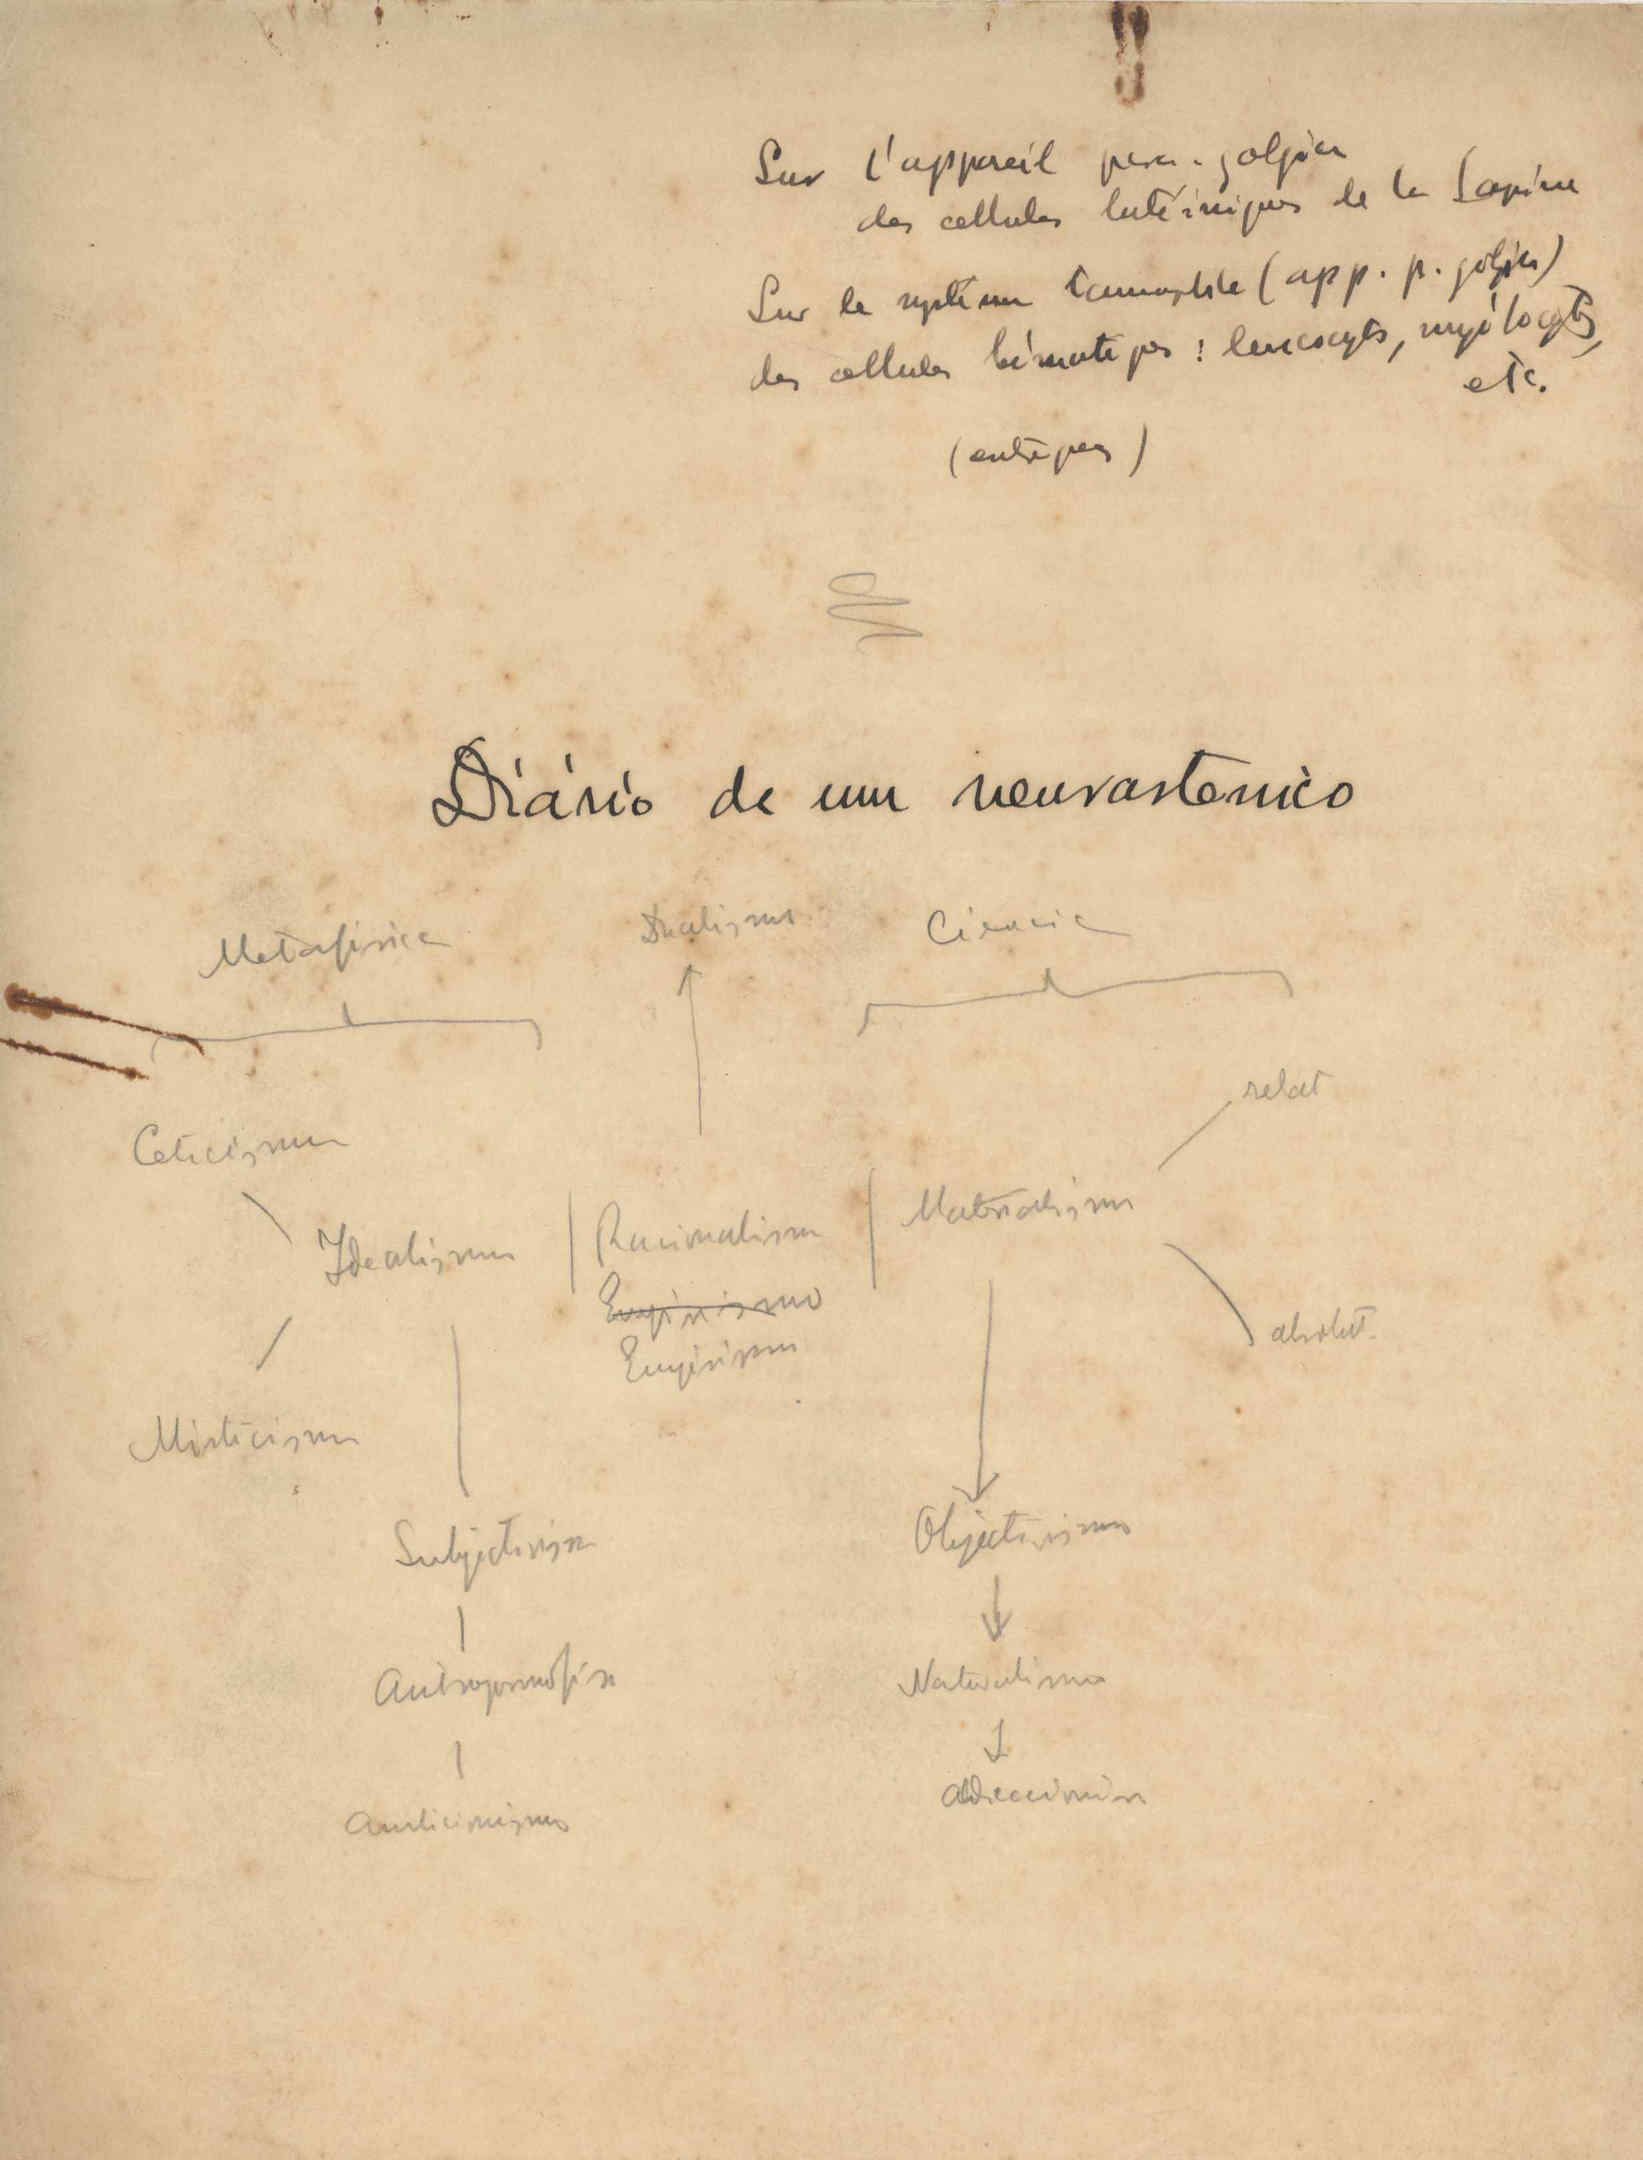 Sur l'appareil para-golgien
des cellules lutéiniques de la Lapine
Sur le système lacunaire (app. p. golgien)
des cellules hématiques : leucocytes, myélocytes,
etc.
Diário de um neurastenico
Metafísica
Dualismo
Ciencia
relat
Ceticismo
Idealismo
Racionalismo
Materialismo
Empirismo
Empirismo
absolut.
Misticismo
Subjectivismo
Objectivismo
Naturalismo